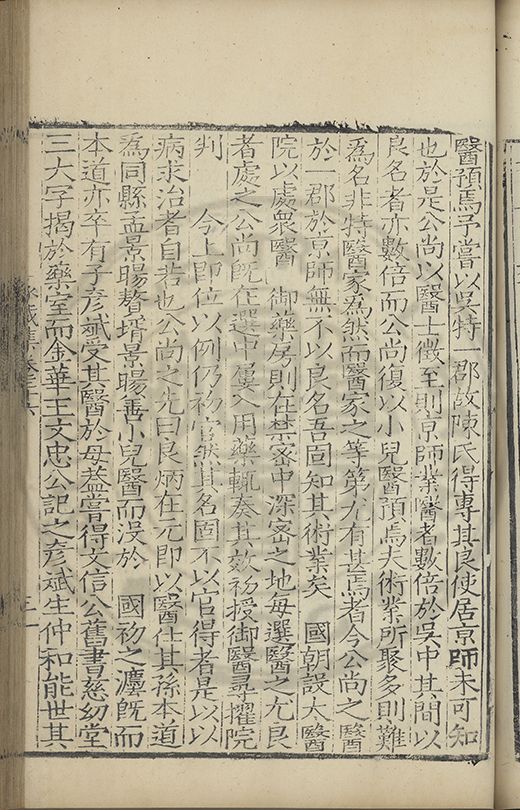 醫預焉予嘗以吳特一郡故陳氏得專其良使居京師未可知
也於是公尚以醫士徵至則京師業醫者數倍於吳中其間以
良名者亦數倍而公尚復以小兒醫預焉夫術業所聚多則難
爲名非特醫家爲然而醫家之等第尤有甚焉者今公尚之醫
於一郡於京師無不以良名吾固知其術業矣 國朝設大醫
院以處衆醫 御藥房則在禁密中深密之地每選醫之尤良
者處之公尚旣在選中屢入用藥輒奏其效初授御醫尋擢院
判 今上即位以例仍初官然其名固不以官得者是以以
病求治者自若也公尚之先曰良炳在元即以醫仕其孫本道
爲同縣孟景暘贅壻景暘善小兒醫而沒於 國初之遷旣而
本道亦卒有子彥斌受其醫於母蓋嘗得文信公舊書慈幼堂
三大字揭於藥室而金華王文忠公記之彥斌生仲和能世其